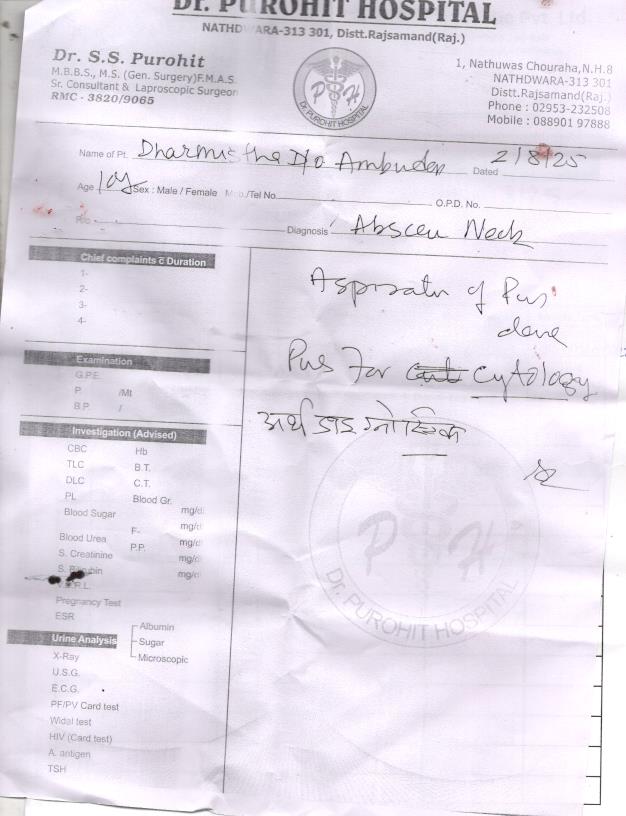 Dr. PUROHIT HOSPITAL
NATHDWARA-313 301, Distt.Rajsamand(Raj.)
Dr. S.S. Purohit
M.B.B.S., M.S. (Gen. Surgery)F.M.A.S.
Sr. Consultant & Laproscopic Surgeon
RMC - 3820/9065
P H
Dr. PUROHIT HOSPITAL
1, Nathuwas Chouraha,N.H.8
NATHDWARA-313 301
Distt.Rajsamand(Raj.)
Phone : 02953-232508
Mobile : 088901 97888
Name of Pt. Dharmistha D/o Dated 2/8/25
Age 10y Sex : Male / Female Mob./Tel No. O.P.D. No.
R/o Diagnosis Abscess Neck
Chief complaints c̄ Duration
1-
2-
3-
4-
Aspiration of Pus
done
Pus For Cytology
Examination
G.P.E.
P. /Mt
B.P. /
Investigation (Advised)
CBC Hb
TLC B.T.
DLC C.T.
PL Blood Gr.
Blood Sugar mg/dl
F- mg/dl
Blood Urea P.P. mg/dl
S. Creatinine mg/dl
S. Bilirubin mg/dl
V.D.R.L.
Pregnancy Test
ESR
Urine Analysis
Albumin
Sugar
Microscopic
X-Ray
U.S.G.
E.C.G.
PF/PV Card test
Widal test
HIV (Card test)
A. antigen
TSH
अर्थ डाइग्नोस्टिक
P H
Dr. PUROHIT HOSPITAL